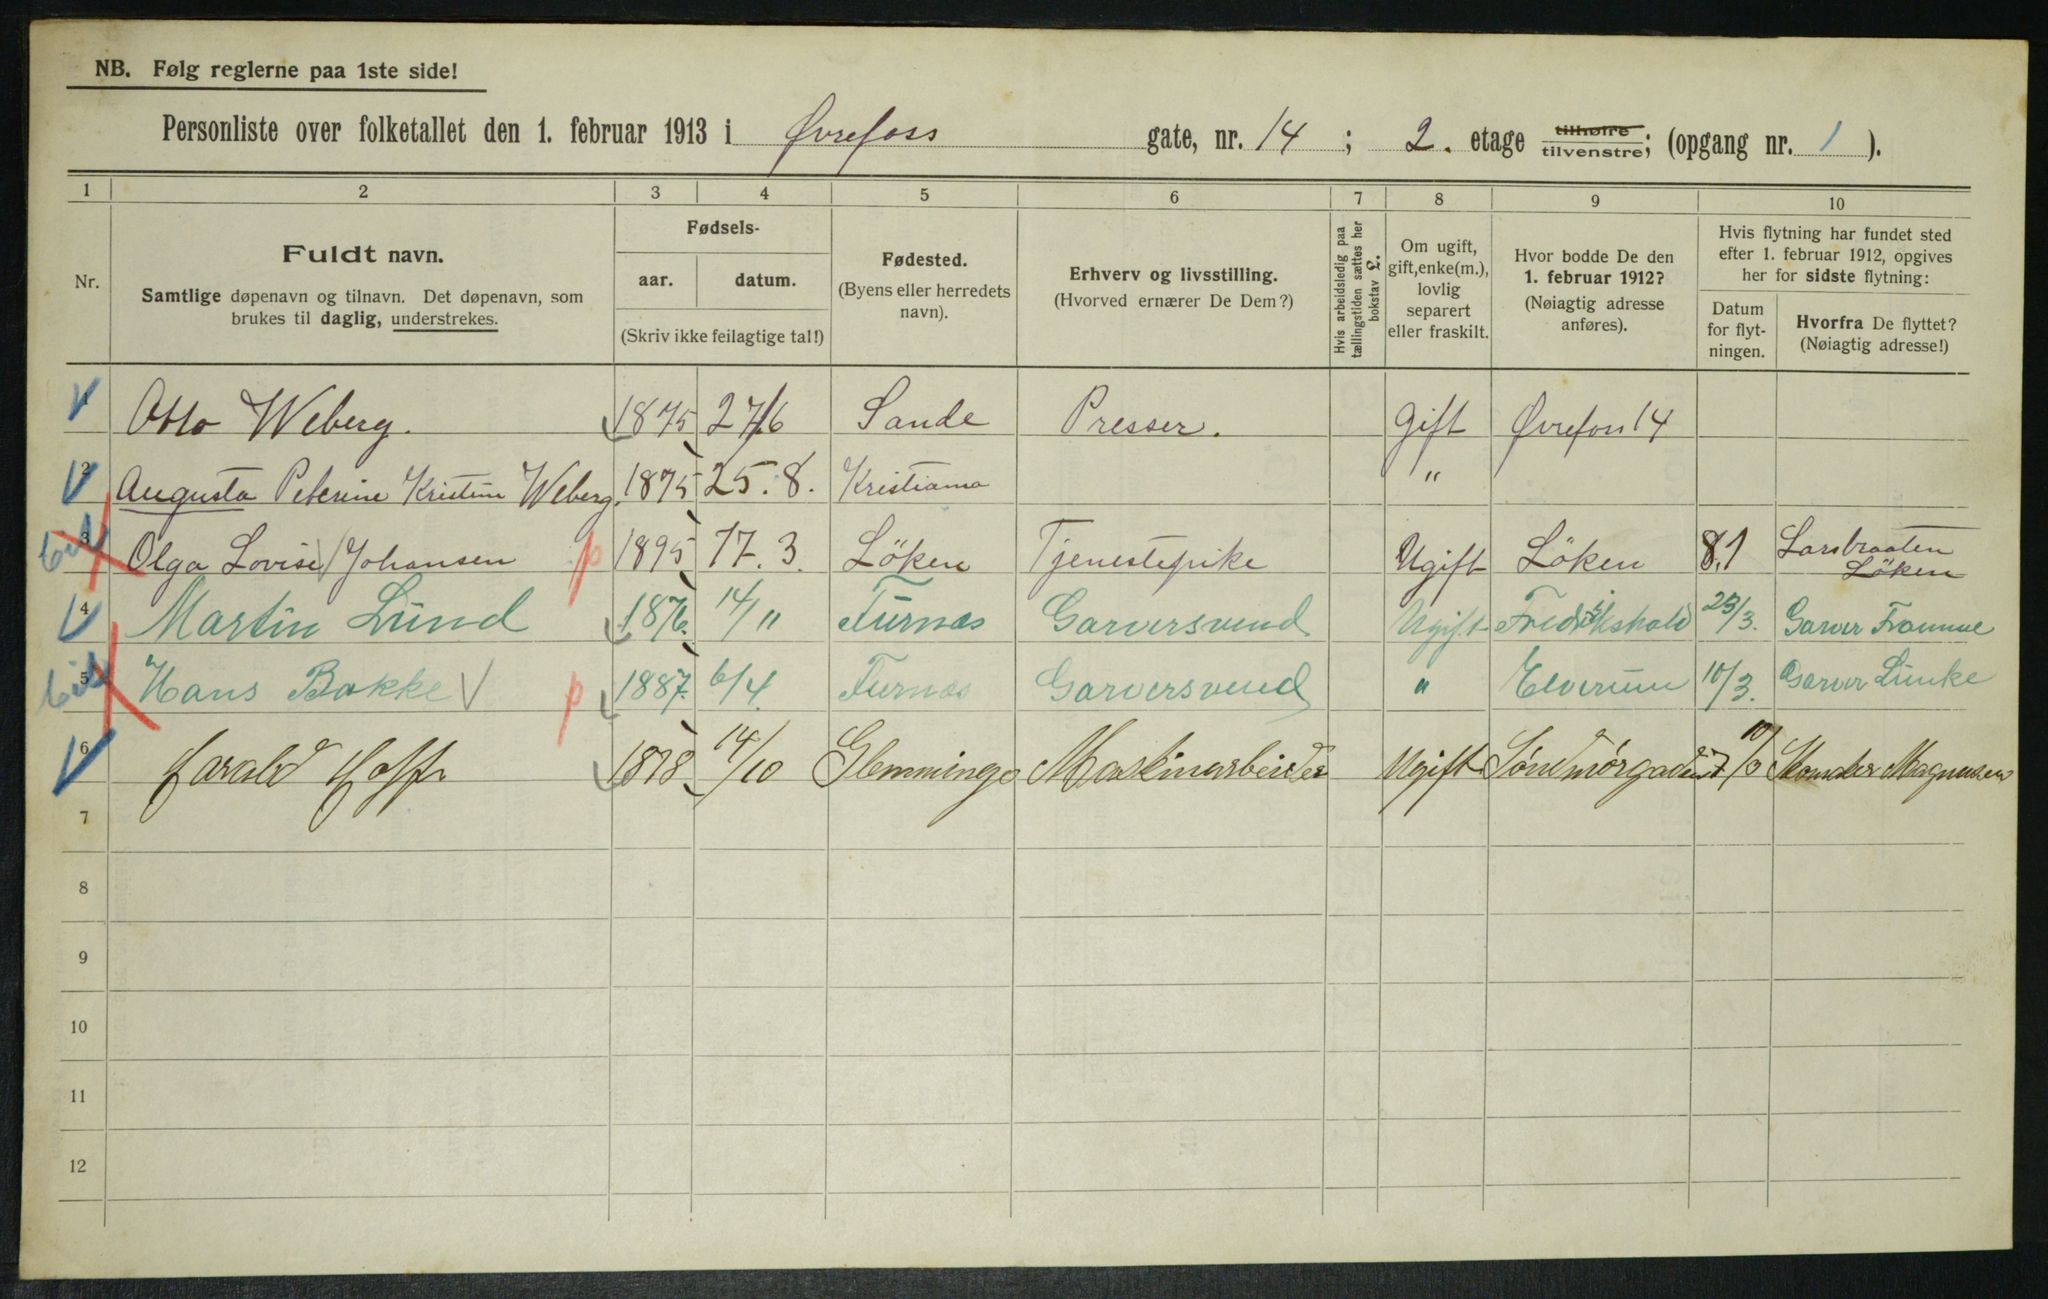 NB. Følg reglerne paa 1ste side!
Personliste over folketallet den 1. februar 1913 i Øvrefoss gate, nr. 14 ; 2. etage tilhøire tilvenstre; (opgang nr. 1 ).
1 2 3 4 5 6 7 8 9 10
Nr.
Fuldt navn.
Samtlige døpenavn og tilnavn. Det døpenavn, som
brukes til daglig, understrekes.
Fødsels-
aar. datum.
(Skriv ikke feilagtige tal!)
Fødested.
(Byens eller herredets
navn).
Erhverv og livsstilling.
(Hvorved ernærer De Dem?)
Hvis arbeidsledig paa
tællingstiden sættes her
bokstav £.
Om ugift,
gift, enke(m.),
lovlig
separert
eller fraskilt.
Hvor bodde De den
1. februar 1912?
(Nøiagtig adresse
anføres).
Hvis flytning har fundet sted
efter 1. februar 1912, opgives
her for sidste flytning:
Datum
for flyt-
ningen.
Hvorfra De flyttet?
(Nøiagtig adresse!)
Otto Weberg. 1875 27/6 Sande Presser. Gift Øvrefoss 14
2 Augusta Peterine Kristine Weberg. 1875 25.8. Kristiania "
3 Olga Lovise Johansen p 1895 17.3. Löken Tjenestepike Ugift Löken 8.1 Larsbraaten
Löken
4 Martin Lund 1876. 14/11 Furnæs Garversvend Ugift Fredrikshald 23/3. Garver Framme
5 Hans Bakke p 1887. 6/4. Furnæs Garversvend " Elverum 10/3. Garver Lunke
6 Harald Hoff 1878 14/10 Glemminge Maskinarbeider Ugift Magnusen
7
8
9
10
11
12